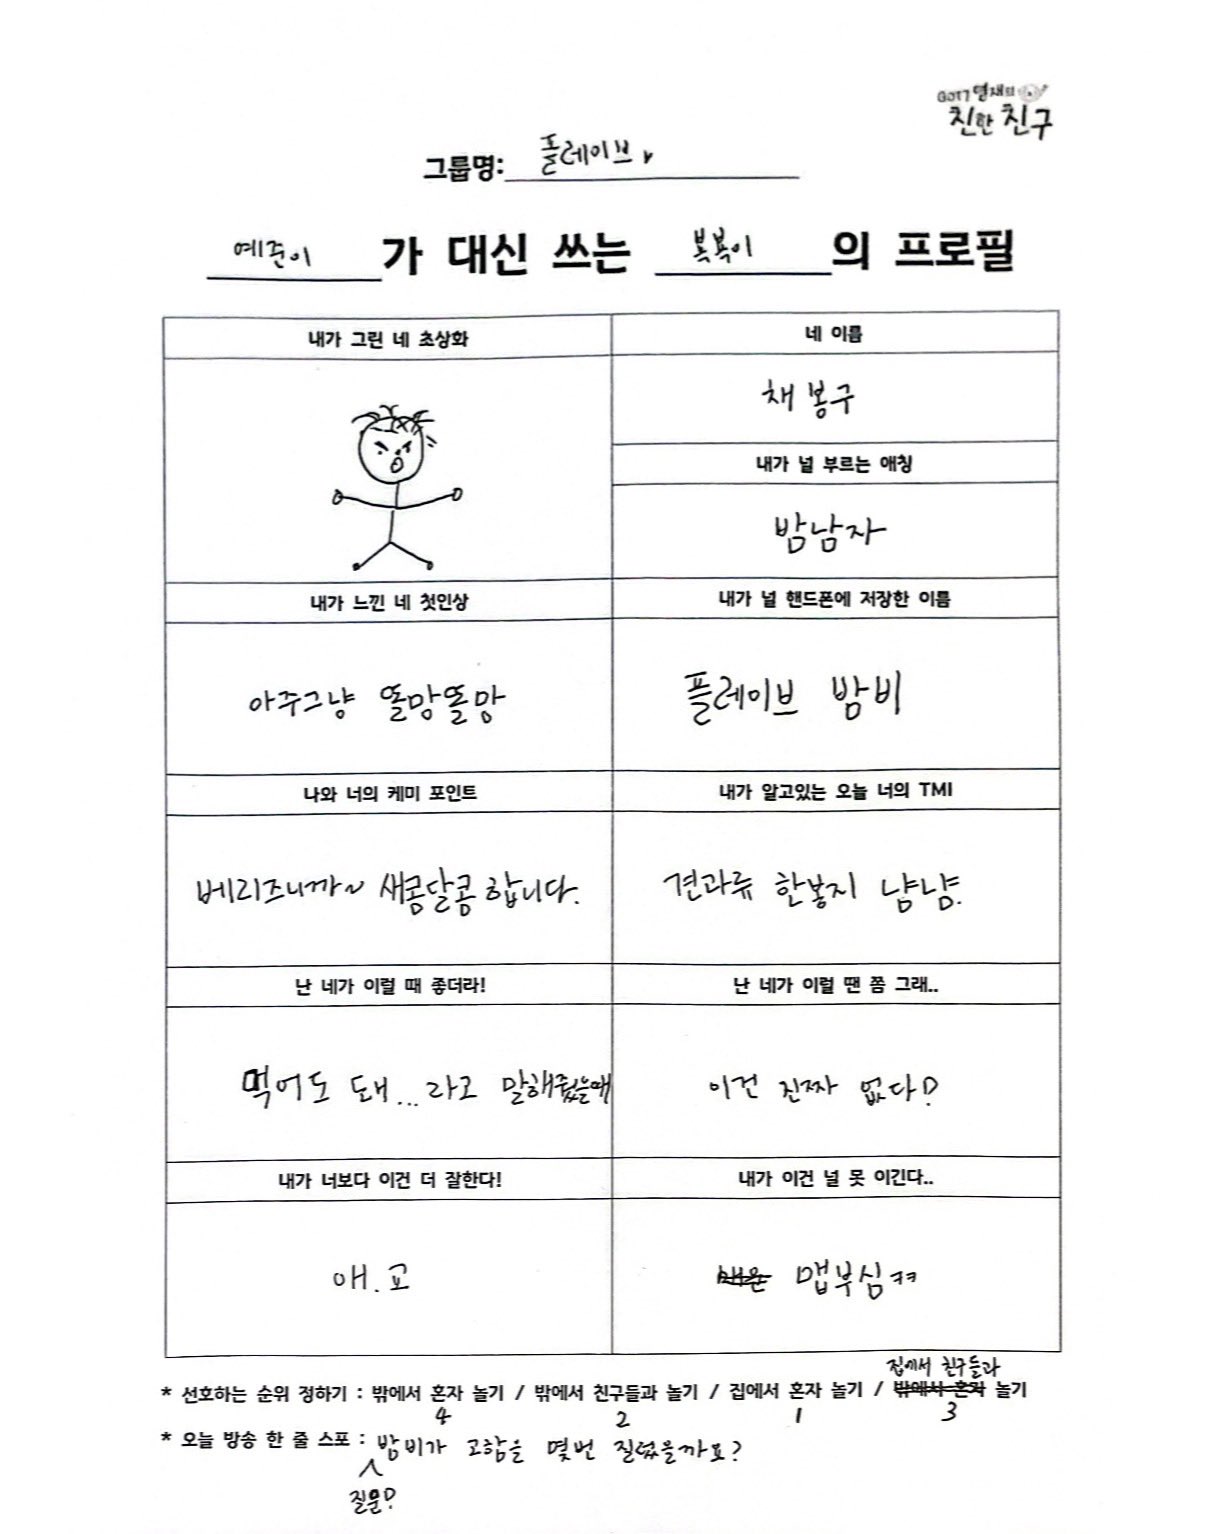 GOT7 영재의
친한 친구
그룹명: 플레이브
예준이가 대신 쓰는 복복이의 프로필
내가 그린 네 초상화
네 이름
채봉구
내가 널 부르는 애칭
밤남자
내가 느낀 네 첫인상
내가 널 핸드폰에 저장한 이름
아주그냥 똘망똘망
플레이브 밤비
나와 너의 케미 포인트
내가 알고있는 오늘 너의 TMI
베리즈니까~ 새콤달콤합니다.
견과류 한봉지 냠냠.
난 네가 이럴 때 좋더라!
난 네가 이럴 땐 쫌 그래..
먹어도 돼...라고 말해줬을때
이건 진짜 없다!
내가 너보다 이건 더 잘한다!
내가 이건 널 못 이긴다..
애.교
매운 맵부심ㅋㅋ
집에서 친구들과
* 선호하는 순위 정하기 : 밖에서 혼자 놀기 / 밖에서 친구들과 놀기 / 집에서 혼자 놀기 / 밖에서 혼자 놀기
4 2 1 3
* 오늘 방송 한 줄 스포 : 밤비가 고함을 몇번 질렀을까요?
질문!